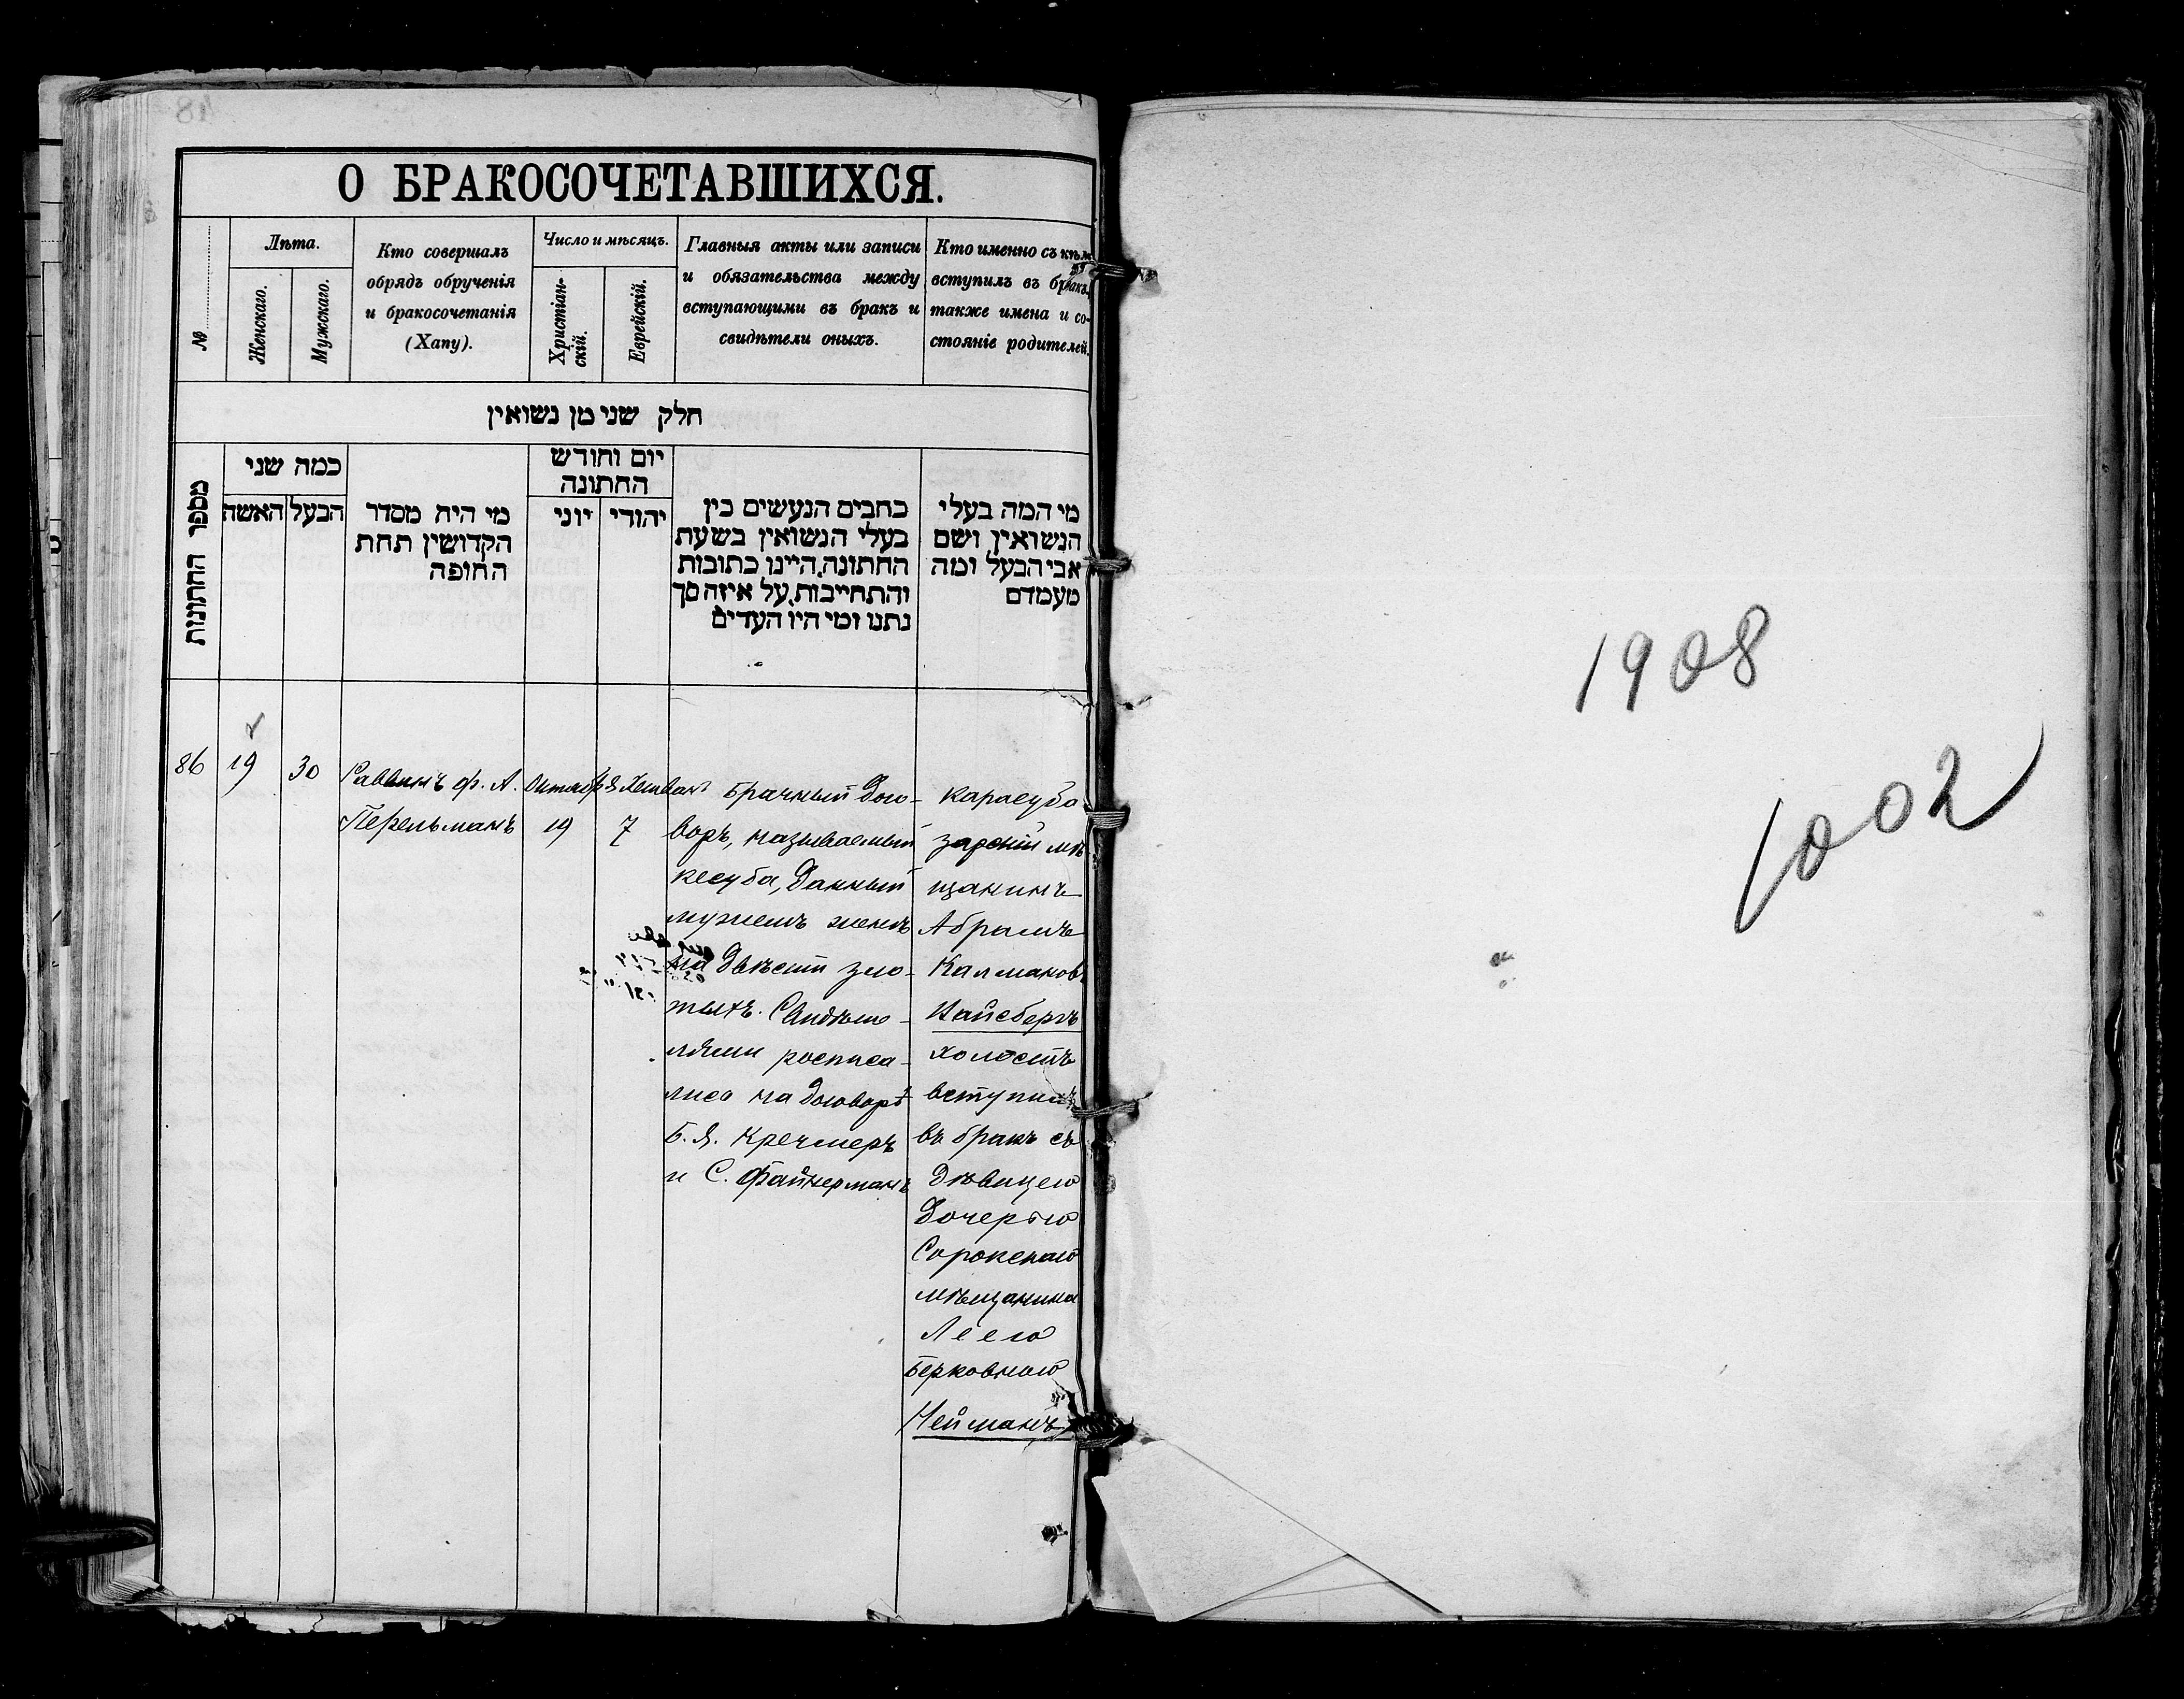 О БРАКОСОЧЕТАВШИХСЯ.
№
Лѣта.
Женскаго.
Мужскаго.
Кто совершалъ
обрядъ обрученія
и бракосочетанія
(Хапу).
Число и мѣсяцъ.
Христіан-
скій.
Еврейскій.
Главныя акты или записи
и обязательства между
вступающими въ бракъ и
свидѣтели оныхъ.
Кто именно съ кѣмъ
вступилъ въ бракъ,
также имена и со-
стояніе родителей.
חלק שני מן נשואין
מספר החתונות
כמה שני
האשה
הבעל
מי היה מסדר
הקדושין תחת
החופה
יום וחודש
החתונה
יוני
יהודי
כתבים הנעשים בין
בעלי הנשואין בשעת
החתונה, היינו כתובות
והתחייבות, על איזה סך
נתנו ומי היו העדים
מי המה בעלי
הנשואין ושם
אבי הבעל ומה
מעמדם
86
19
30
Раввинъ Ф. А.
Перельманъ
Октября
19
Хешванъ
7
Брачный дого-
воръ, называемый
кесуба, данный
мужемъ женѣ
на двѣсти зло-
тыхъ. Свидѣте-
лями росписа-
лись на договорѣ
Б. Я. Кречмеръ
и С. Файнерманъ
Карасуба
зарскій мѣ
щанинъ
Абрамъ
Калмановъ
Вайсбергъ
холостъ
вступилъ
въ бракъ съ
дѣвицею
дочерью
Сорокскаго
мѣщанина
Леею
Берковною
Нейманъ
1908
1002